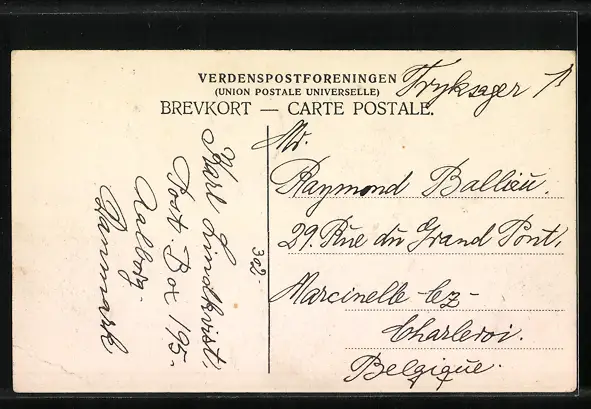 VERDENSPOSTFORENINGEN
(UNION POSTALE UNIVERSELLE)
BREVKORT — CARTE POSTALE.
Tryksager
Karl Lindkvist,
Post. Box 195.
Aalborg.
Danmark
302.
Mr.
Raymond Ballieu.
29. Rue du Grand Pont,
Marcinelle-lez-
Charleroi.
Belgique.